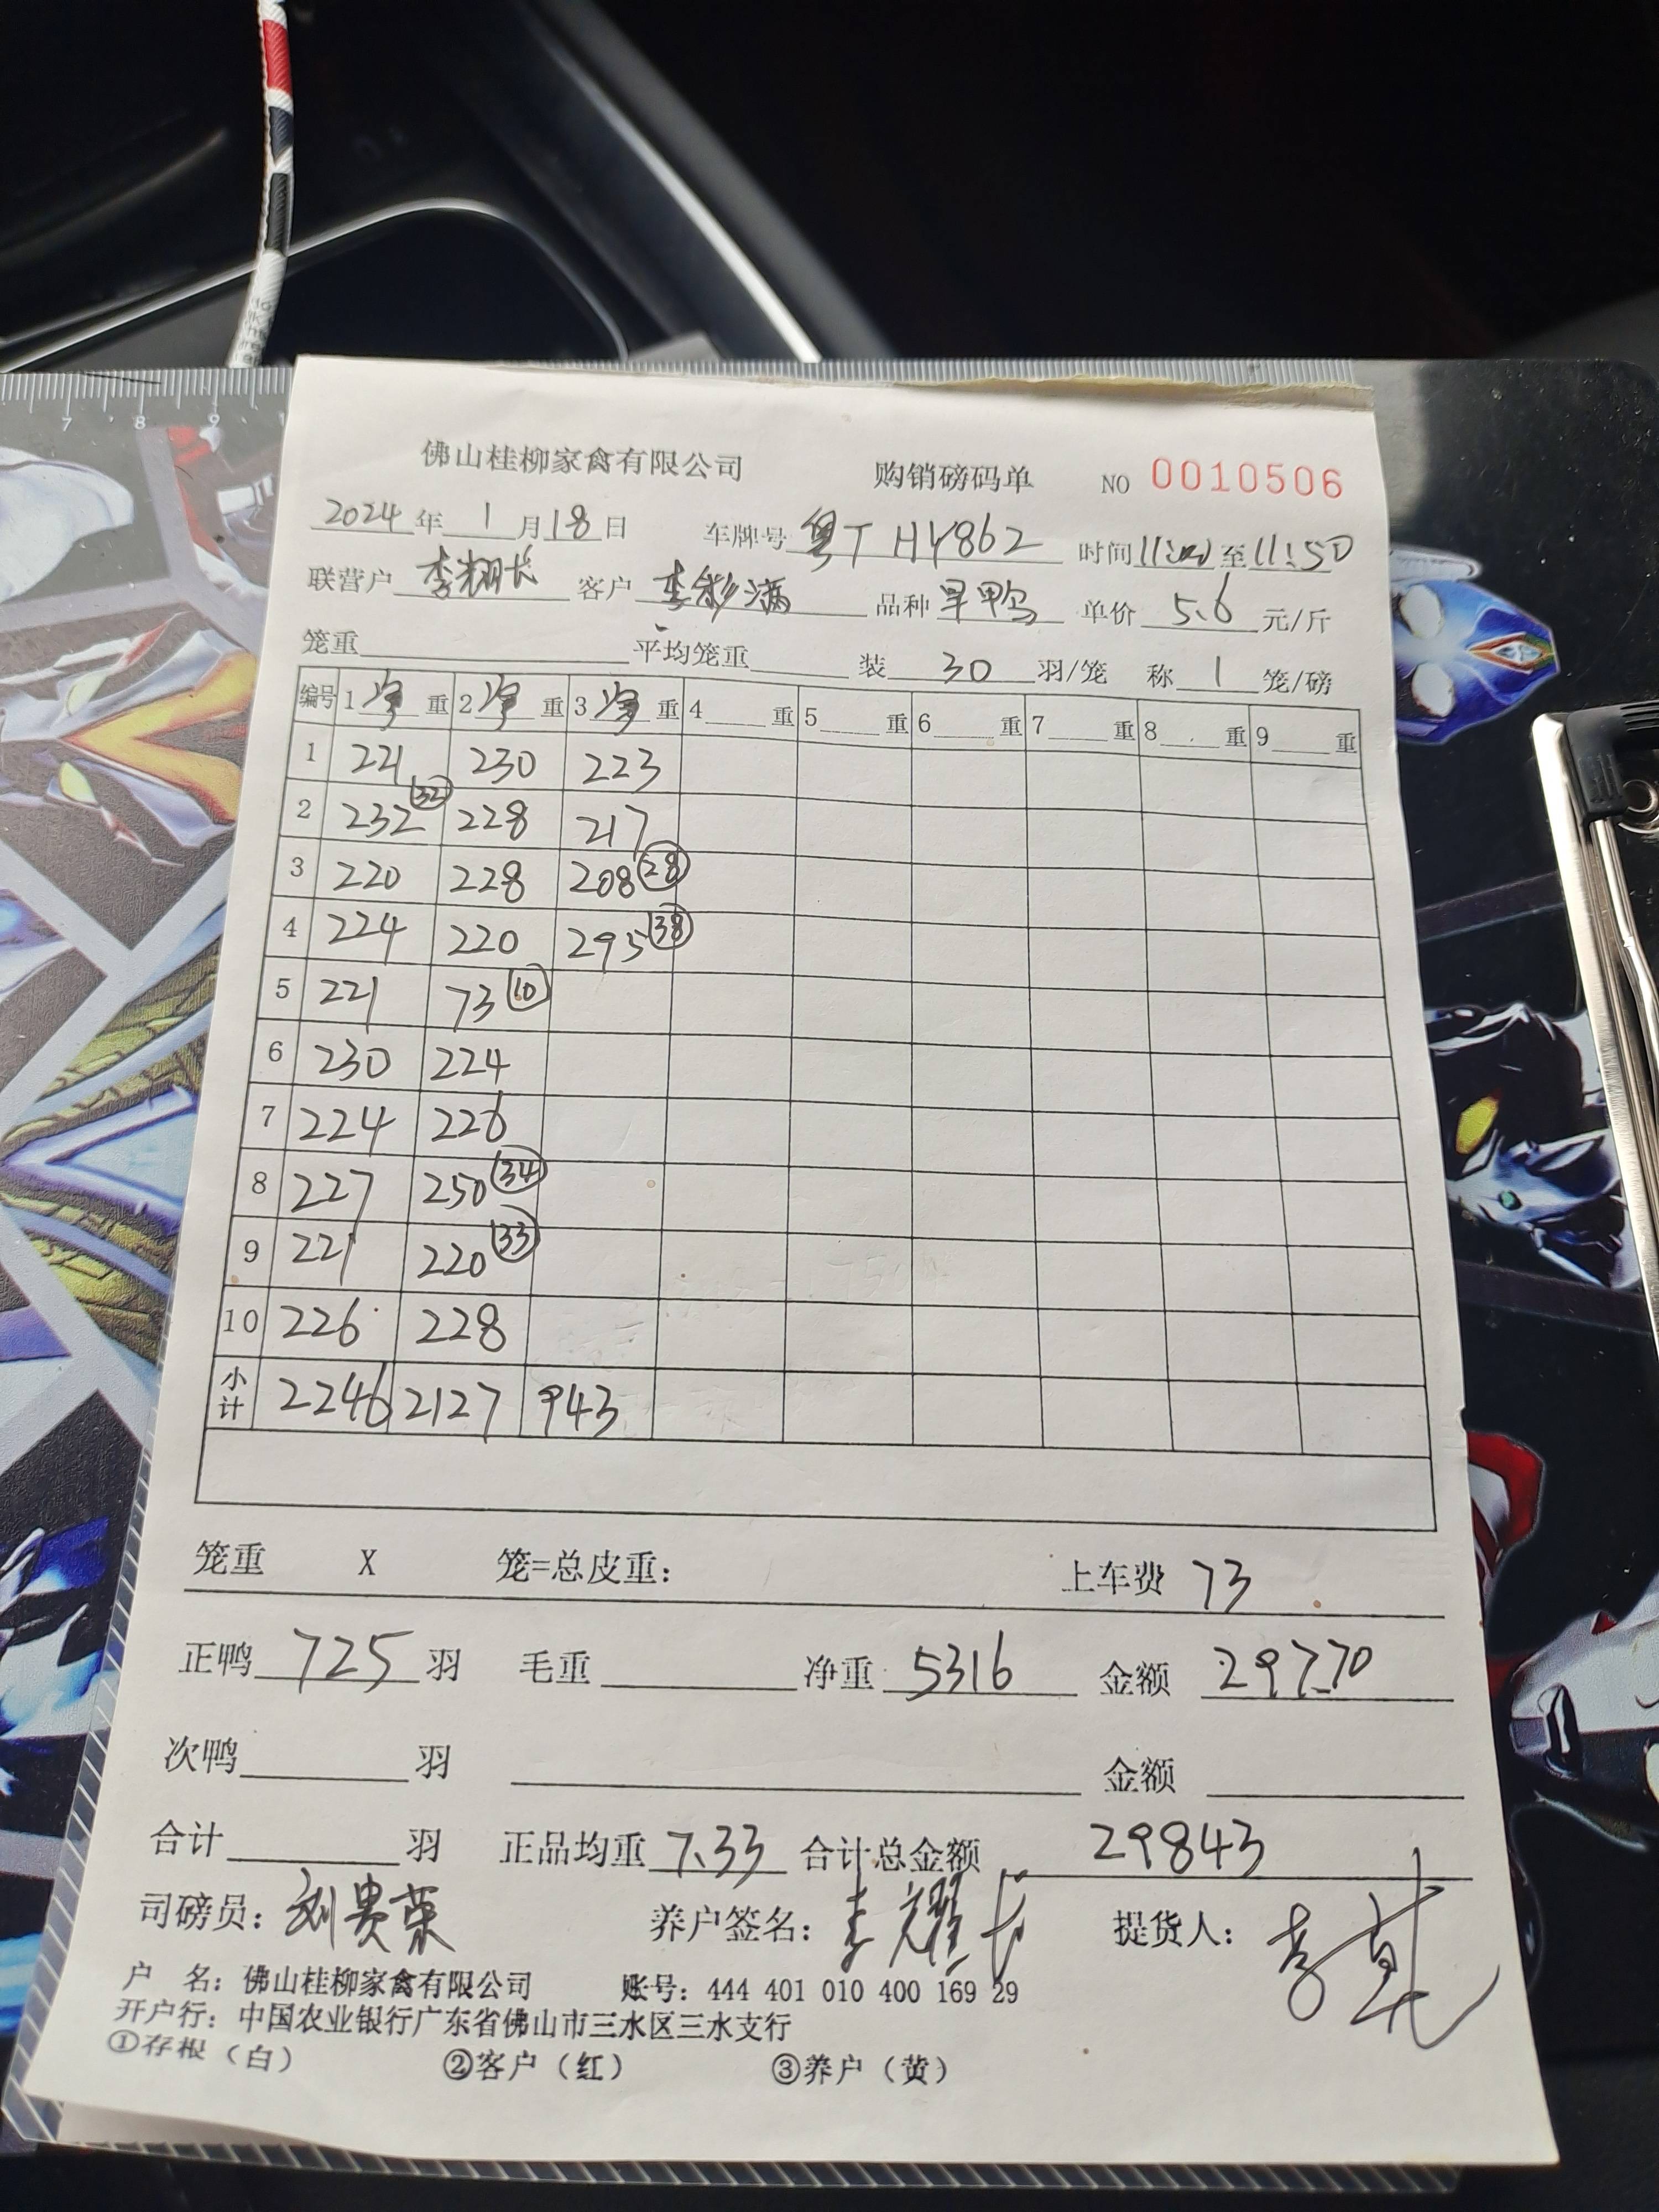 7 8 9
佛山桂柳家禽有限公司 购销磅码单 NO 0010506
2024年1月18日 车牌号 粤T HY862 时间 至11:50
联营户 李翔长 客户 李彩满 品种 旱鸭 单价 5.6 元/斤
笼重 平均笼重 装 30 羽/笼 称 1 笼/磅
编号 1净重 2净重 3净重 4重 5重 6重 7重 8重 9重
1 221 230 223
2 232 (32) 228 217
3 220 228 208 (28)
4 224 220 295 (38)
5 221 73 (10)
6 230 224
7 224 226
8 227 250 (34)
9 221 220 (33)
10 226 228
小计 2246 2127 943
笼重 X 笼=总皮重: 上车费 73
正鸭 725 羽 毛重 净重 5316 金额 29770
次鸭 羽 金额
合计 羽 正品均重 7.33 合计总金额 29843
司磅员: 刘贵荣 养户签名: 李耀长 提货人:
户 名: 佛山桂柳家禽有限公司 账号: 444 401 010 400 169 29
开户行: 中国农业银行广东省佛山市三水区三水支行
①存根（白） ②客户（红） ③养户（黄）